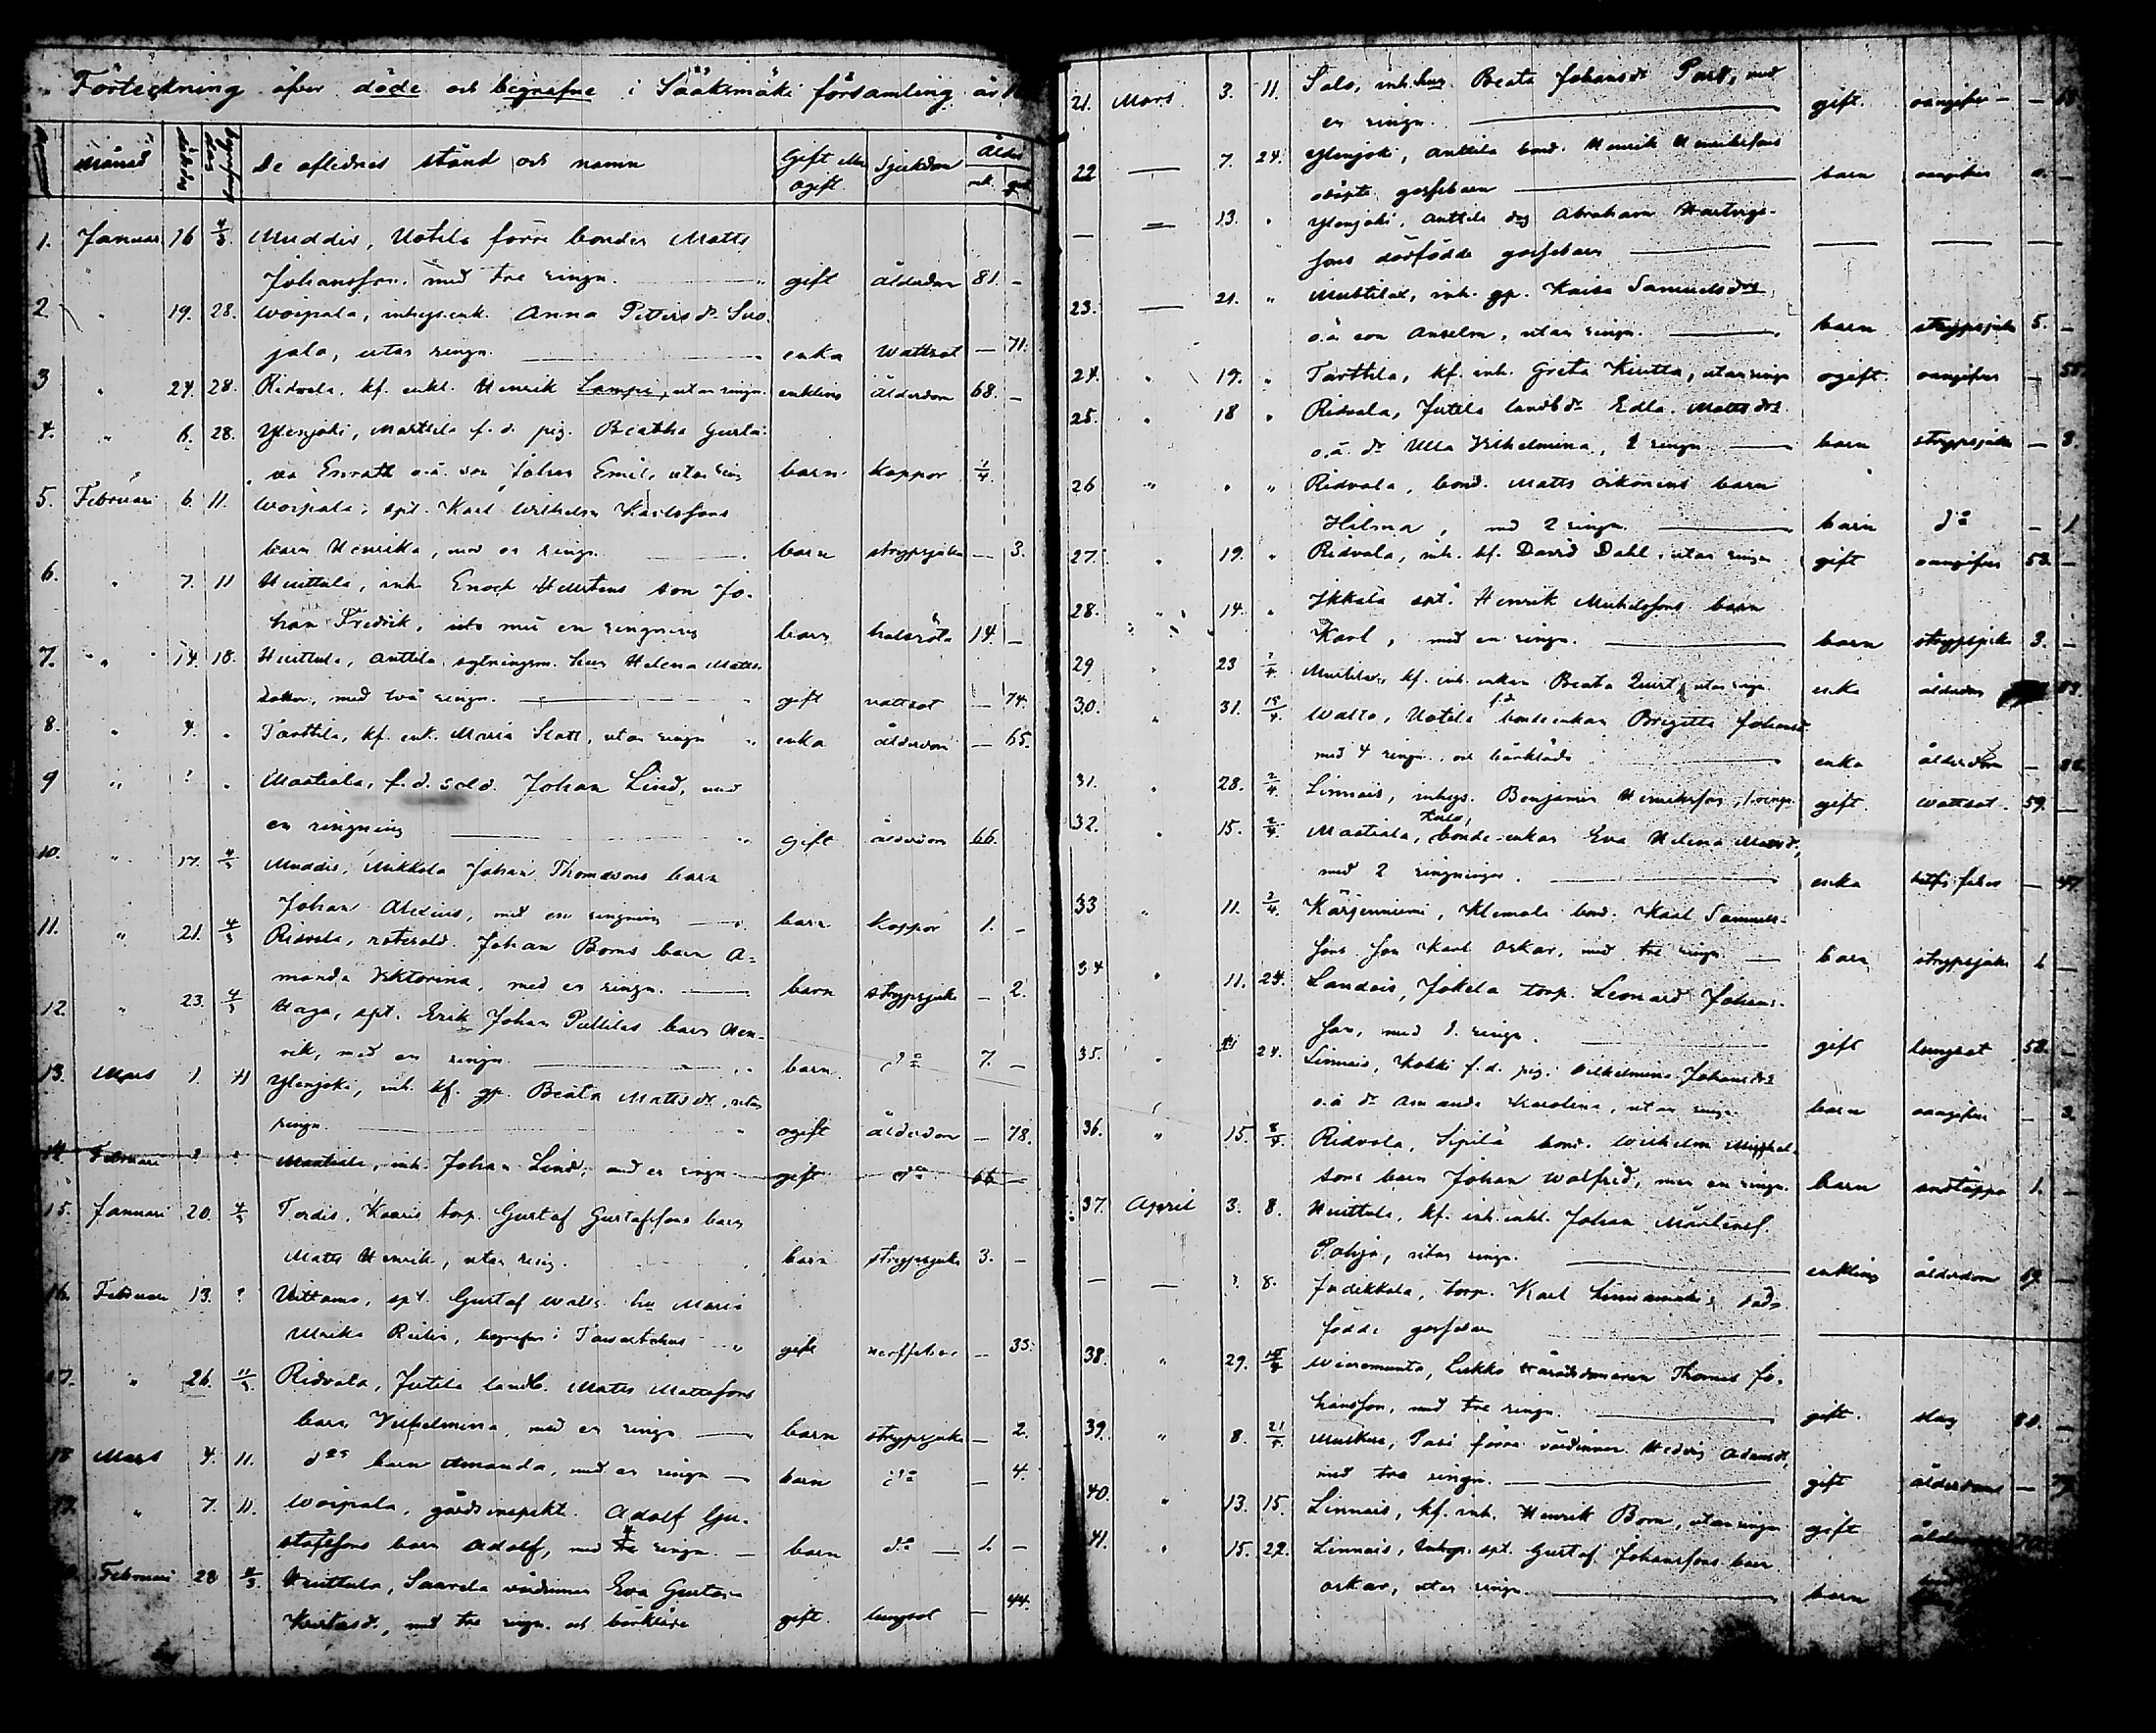 Förteckning öfver döde och begrafne i Sääksmäki församling år
Månad De aflidnes stånd och namn Gift eller ogift Sjukdom Ålder
mk. qvk.
1. Januari 16 4/3. Muddis, Uotila förre bonden Matts
Johansson, med tre ringn. gift ålderdom 81. -
2. " 19. 28. Woipala, inhys.enk. Anna Petters dr Suo-
jala, utan ringn. enka wattsot — 71.
3 " 24. 28. Ridvala, kf. enkl. Henrik Lampi, utan ringn. enkling ålderdom 68. -
4. " 6. 28. Ylenjoki, Marttila f.d. pig. Beatha Gusta-
va Enrath o.ä. son Johan Emil, utan ring barn koppor 1/4
5. Februari 6. 11. Woipala, spt. Karl Wilhelm Karlssons
barn Henrika, med en ringn. barn strypsjuka — 3.
6. " 7. 11 Huittula, inh. Enoch Hellstens son Jo-
han Fredrik, med en ringning barn halsröta 14. -
7. " 14. 18. Huittula, Anttila sytningsm. hus. Helena Matts-
dotter, med två ringn. gift wattsot — 74.
8. " 4. " Tarttila, kf. enk. Maria Slatt, utan ringn " enka ålderdom — 65.
9 " ? " Maatiala, f.d. sold. Johan Lind, med
en ringning gift ålderdom 66.
10. " 17. 4/3 Muddis, Mikkola Johan Thomassons barn
Johan Alexius, med en ringning barn koppor 1. -
11. " 21. 4/3 Ridvala, rotesold. Johan Boms barn A-
manda Viktorina, med en ringn. barn strypsjuka — 2.
12 " 23. 4/3 Haga, spt. Erik Johan Pellilas barn Hen-
rik, med en ringn. barn do 7. -
13. Mars 1. 11 Ylenjoki, inh. kf. gp. Beata Matts dr, utan
ringn. ogift ålderdom — 78.
14 Februari ? ? Maatiala, inh. Johan Lind, med en ringn gift do 66 -
15. Januari 20. 4/3 Tordis, Kaaris torp. Gustaf Gustafssons barn
Matts Henrik, utan ring. barn strypsjuka 3. -
16. Februari 13. ? Uittamo, spt. Gustaf Walls hu Maria
Ulrika Reilin, begrafen i Tavastehus " gift nerffeber — 33.
17. " 26. 11/3. Ridvala, Jutila landb. Matts Mattssons
barn Vilhelmina, med en ringn barn strypsjuka — 2.
18 Mars 4. 11. ds barn Amanda, med en ringn — barn do — 4.
19. " 7. 11. Woipala, gårdsinspekt. Adolf Gu-
stafssons barn Adolf, med tre ringn. — barn do — 1. -
Februari 28 11/3. Huittula, Saarela värdinnan Eva Gustava
Kustas dr, med tre ringn. och bårkläde gift. lungsot — 44.
21. Mars 3. 11. Salo, inh. hus. Beata Johans dr Post, med
en ringn. gift. oangifven —
22 — 7. 24. Ylenjoki, Anttila bond. Henrik Henrikssons
odöpte gossebarn barn oangifven 0. —
— — 13. " Ylenjoki, Anttila drg Abraham Hartvigs-
sons dödfödde gossebarn — — —
23. — 21. " Muttilal, inh. gp. Kaisa Samuels dr
o.ä. son Anselm, utan ringn. barn strypsjuka 5. —
24. " 19. " Tarttila, kf. inh. Greta Kiutta, utan ringn ogift. oangifven — 55.
25. " 18 " Ridvala, Jutila landb dr Edla Matts drs
o.ä. dr Ulla Vilhelmina, 2 ringn barn strypsjuka — 3.
26 " " " Ridvala, bond. Matts Oikonens barn
Hilma, med 2 ringn. barn do — 1
27. " 19. " Ridvala, inh. kf. David Dahl, utan ringn gift oangifven 53. —
28. " 14. " Ikkala spt. Henrik Mickelssons barn
Karl, med en ringn. barn strypsjuka 3. —
29 " 23 2/4. kf. inh. enkan Beata Quist, utan ringn enka ålderdom
30. " 31. 15/4. Walto, Uotila f.d. bondeenkan Brigitta Johansdr
med 4 ringn. och bårkläde enka ålderdom —
31. " 28. 2/4. Linnais, inhys. Benjamin Henriksson, 1 ringn. gift. wattsot. 59. —
32. " 15. 2/4. Maatiala, bonde-enkan Eva Helena Matts dr,
med 2 ringningar. enka —
33 " 11. 2/4. Kärjenniemi, Klemola bond. Karl Samuels-
sons son Karl Oskar, med tre ringn. — barn strypsjuka —
34 " 11. 24. Landais, Jokela torp. Leonard Johans-
son, med 2. ringn. gift lungsot 58. —
35. " 24. Linnais, Kokki f.d. pig. Vilhelmina Johans drs
o.ä dr Amanda Karolina, utan ringn. barn oangifven — 3.
36. " 15. 8/4. Ridvala, Sipilä bond. Wilhelm Michels-
sons barn Johan Walfrid, med en ringn. barn andtäppa 1. —
37. April 3. 8. Huittula, kf. inh. enkl. Johan Mårtenss.
Pohja, utan ringn. enkling ålderdom —
— — ? 8. Jutikkala, torp. Karl Linnanmäkis död-
födde gossebarn
38. " 29. Wieromunta, Lukko häradsdomaren Thomas Jo-
hansson, med tre ringn. gift. slag 80. —
39. " 8. 21/4. Muikura, Pasi förra värdinnan Hedvig Adams dr,
med tre ringn. gift ålderdom —
40. " 13. 15. Linnais, kf. inh. Henrik Bom, utan ringn gift ålderdom
41. " 15. 22. Linnais, spt. Gustaf Johanssons barn
Oskar, utan ringn. barn